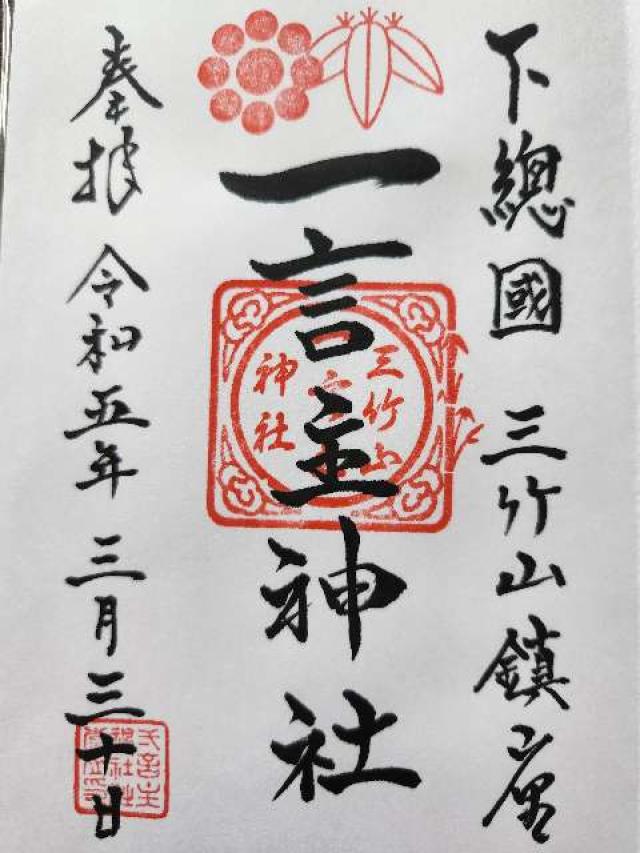 下總國 三竹山鎮座
一言主神社
三竹山
神社
奉拝 令和五年 三月三十日